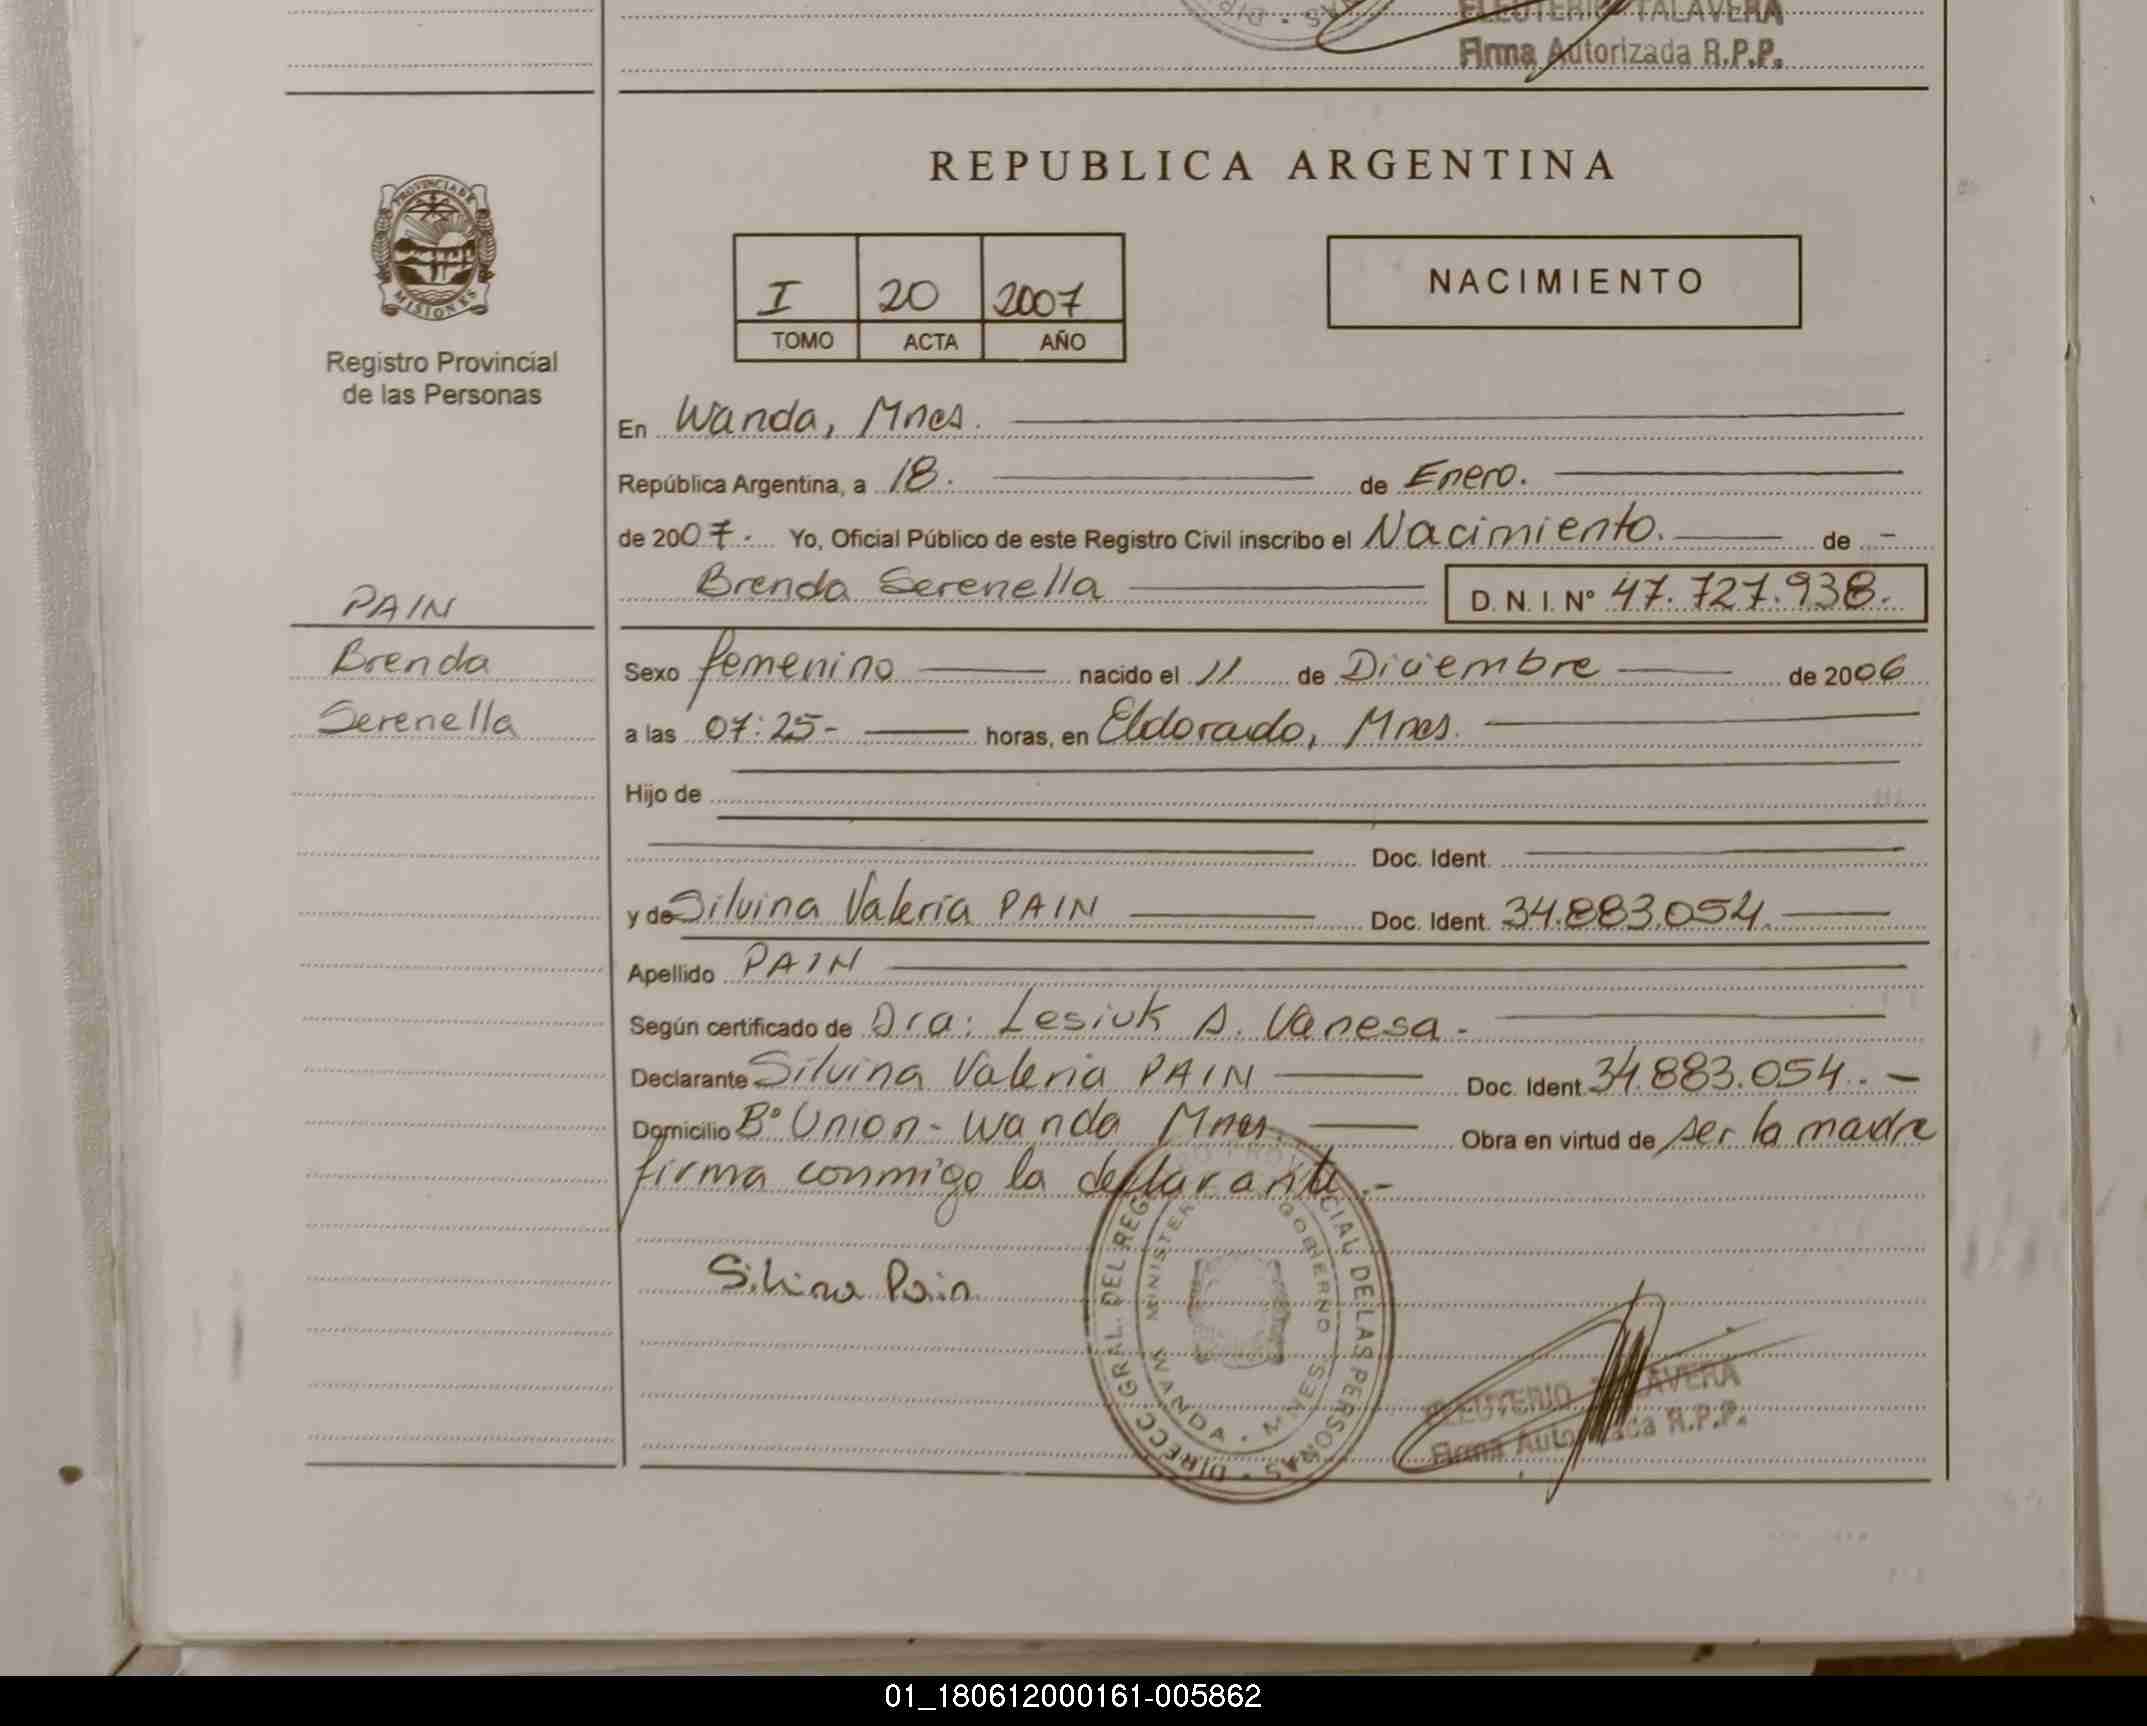 ELEUTERIO TALAVERA
Firma Autorizada R.P.P.
REPUBLICA ARGENTINA
PROVINCIA DE
MISIONES
Registro Provincial
de las Personas
I 20 2007
TOMO ACTA AÑO
NACIMIENTO
En Wanda, Mnes.
República Argentina, a 18. de Enero.
de 2007. Yo, Oficial Público de este Registro Civil inscribo el Nacimiento. de -
Brenda Serenella D. N. I. Nº 47.727.938.
PAIN
Brenda
Serenella
Sexo femenino nacido el 11 de Diciembre de 2006
a las 07:25- horas, en Eldorado, Mnes.
Hijo de
Doc. Ident.
y de Silvina Valeria PAIN Doc. Ident. 34.883.054.
Apellido PAIN
Según certificado de Dra: Lesiuk A. Vanesa.-
Declarante Silvina Valeria PAIN Doc. Ident. 34.883.054.-
Domicilio Bº Union - Wanda Mnes. Obra en virtud de ser la madre
firma conmigo la declarante.-
Silvina Pain
DIRECC. GRAL. DEL REG PRO CIAL DE LAS PERSONAS
MINISTER GOBIERNO
WANDA - MNES.
ELEUTERIO TALAVERA
Firma Autorizada R.P.P.
01_180612000161-005862